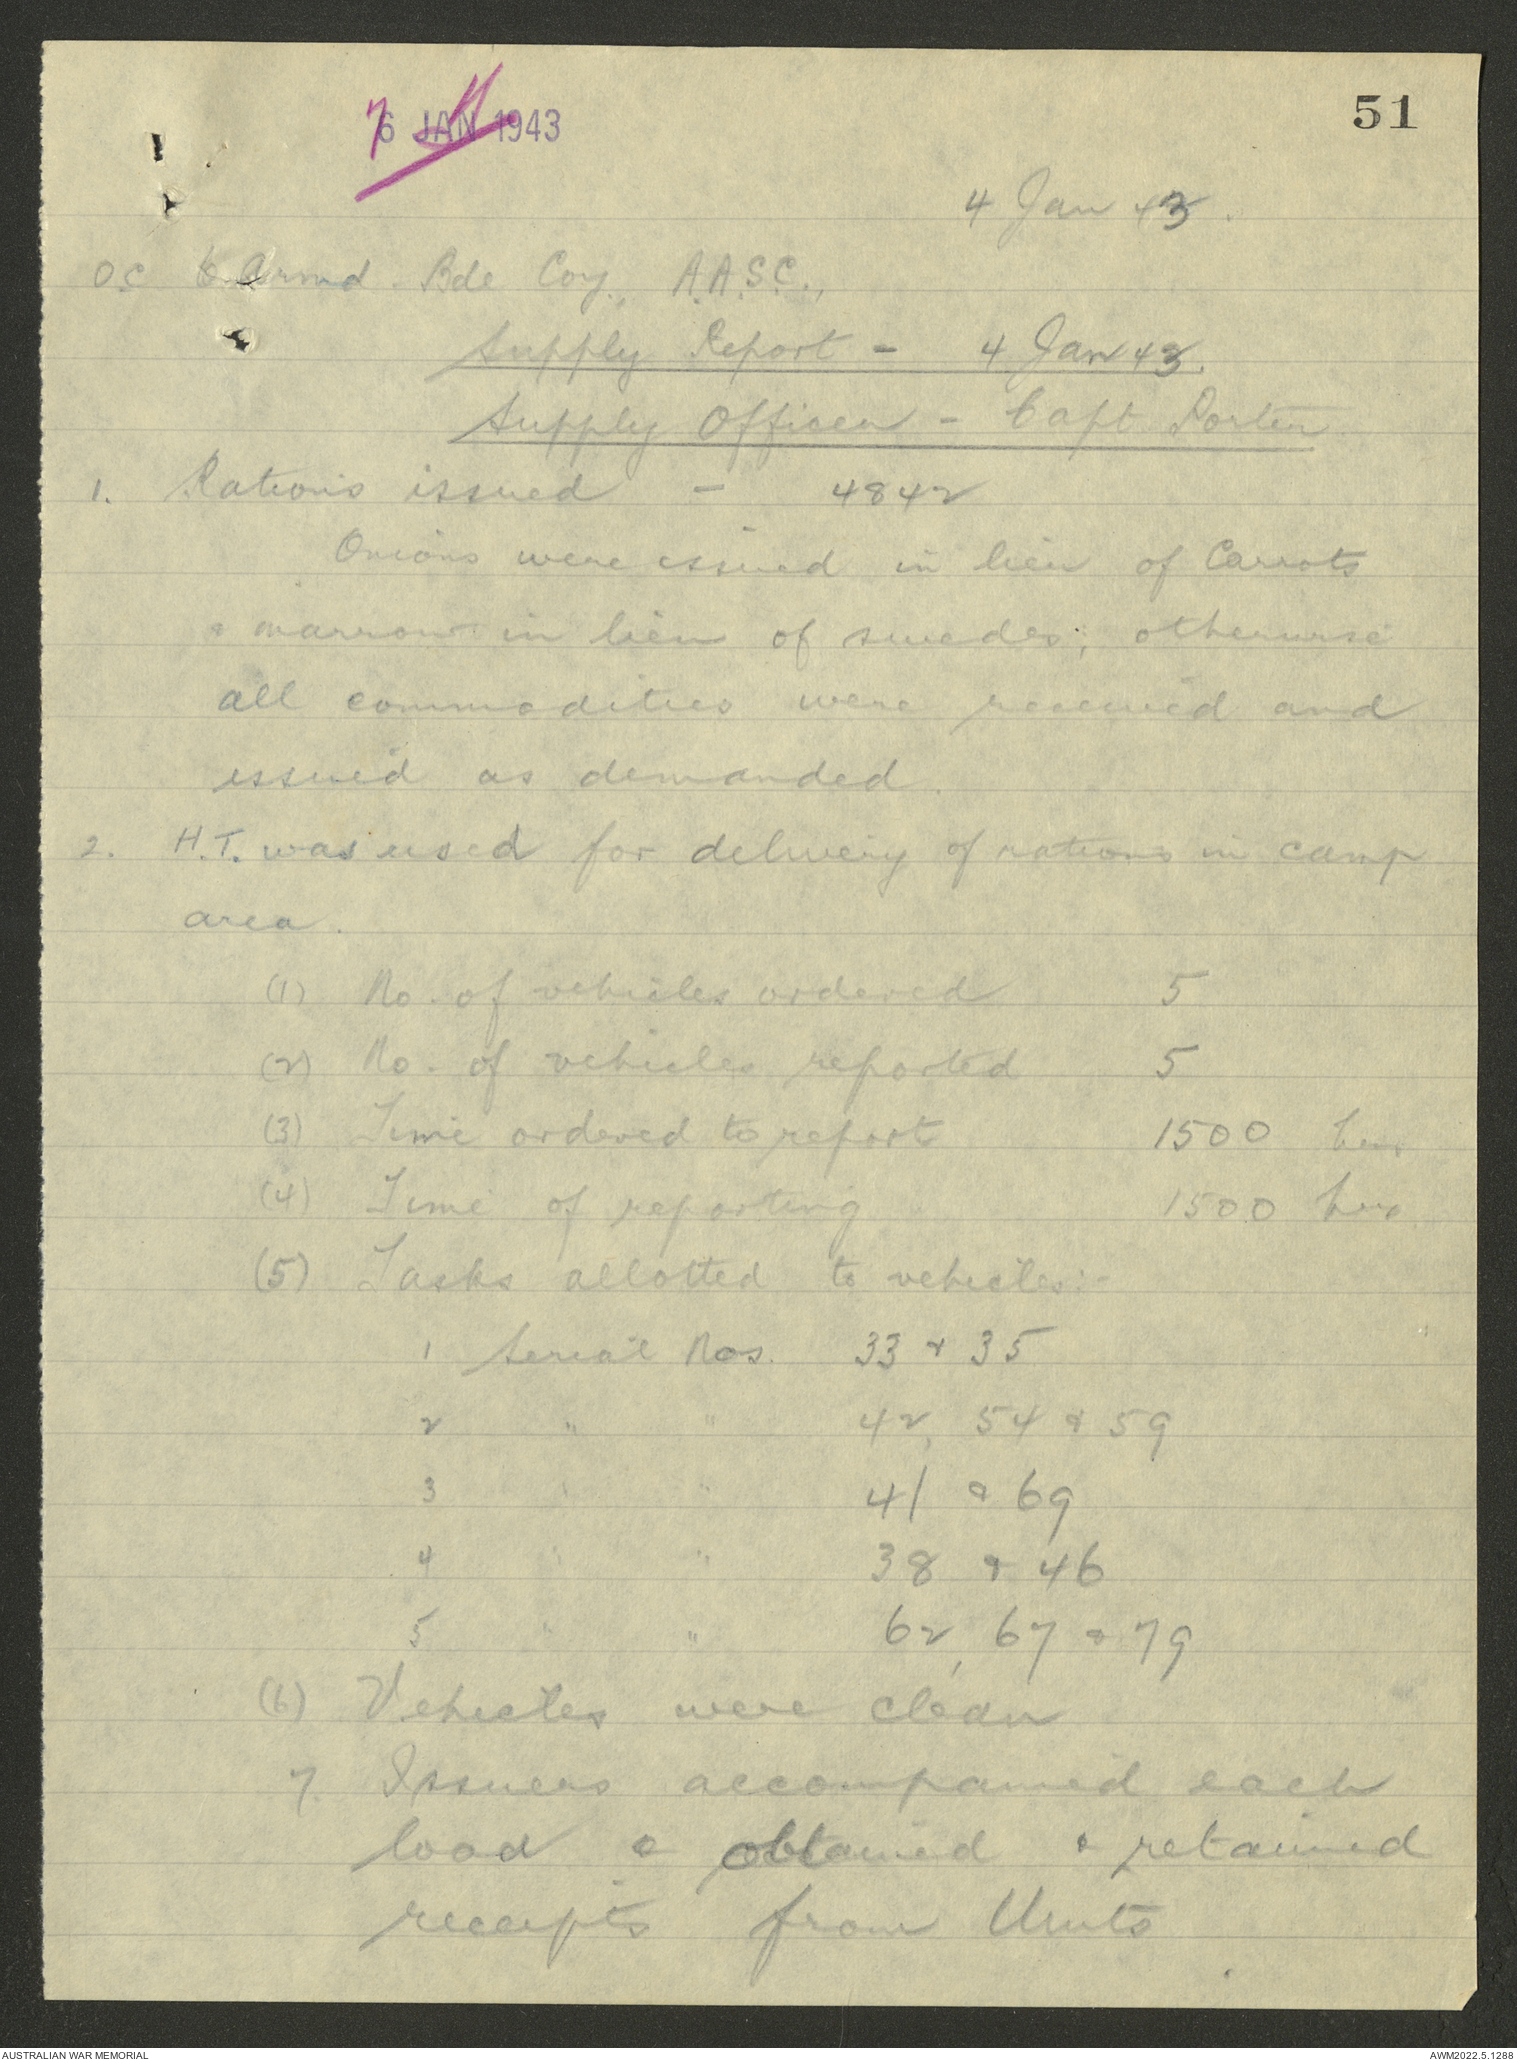 51
76 JAN 1943
4 Jan 43.
OC 6. Armd. Bde Coy., A.A.S.C.,
Supply Report - 4 Jan 43.
Supply Officer - Capt Porter
1. Rations issued - 4842
Onions were issued in lieu of Carrots
& marrow in lieu of swedes; otherwise
all commodities were received and
issued as demanded.
2. H.T. was used for delivery of rations in camp
area.
(1) No. of vehicles ordered 5
(2) No. of vehicles reported 5
(3) Time ordered to report 1500 hrs
(4) Time of reporting 1500 hrs
(5) Tasks allotted to vehicles:-
1 Serial Nos. 33 & 35
2 " " 42, 54 & 59
3 " " 41 & 69
4 " " 38 & 46
5 " " 62, 67 & 79
(6) Vehicles were clean
7. Issuers accompanied each
load & obtained & retained
receipts from Units
AUSTRALIAN WAR MEMORIAL
AWM2022.5.1288